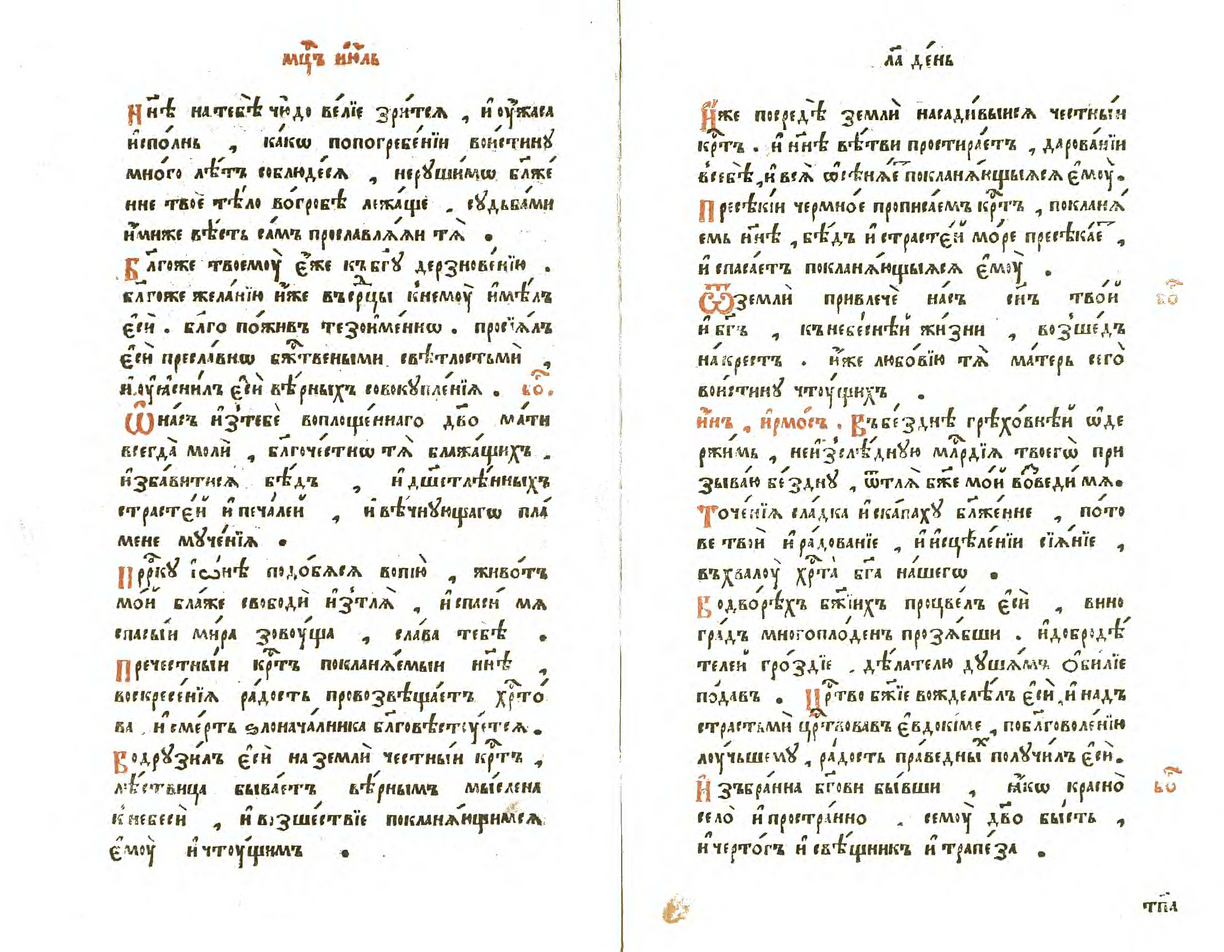 мц҃ъ ию́ль
Нн҃ѣ на тебѣ̀ чю́до ве́лїе зри́тсѧ , и҆ оу҆́жаса
и҆спо́лнь , ка́кѡ попогребе́нїи вои́стинꙋ
мно́го лѣ́тъ соблюде́сѧ , неруши́мѡ бл҃же
нне твоѐ тѣ́ло во́гробѣ лежа́ще . сꙋдьба́ми
и҆́миже вѣ́сть са́мъ прославлѧ́ѧи тѧ̀ .
Бл҃гоже твоемоу̀ є҆́же къ бг҃ꙋ дерзнове́нїю .
бл҃гоже жела́нїю и҆́же въ се́рдцы к не́моу и҆мѣ́лъ
є҆сѝ . бл҃го пожи́въ тезоиме́ннѡ . просїѧ́лъ
є҆сѝ пресла́внѡ бж҃твеными свѣ́тлостьмѝ ,
и҆ оу҆ꙗснилъ є҆сѝ вѣ́рныхъ совокупле́нїѧ . бо҃.
Ѿ на́съ и҆зъ тебѐ воплоще́ннаго дв҃о ма́ти
всегда̀ молѝ , бл҃гоче́стнѡ тѧ̀ блажа́щихъ .
и҆зба́витисѧ бѣ́дъ , и҆ дш҃етлѣ́нныхъ
страсте́й и҆ печа́лей , и҆ вѣ́чнующагѡ пла́
мене муче́нїѧ .
Прⷪ҇рку і҆ѡ́нѣ подо́бѧсѧ вопїю̀ , живо́тъ
мо́й бла́же свободѝ и҆зъ тлѧ̀ , и҆ спасѝ мѧ
спасы́й ми́ра зовоу́ща , сла́ва тебѣ̀ .
Пречестны́й крⷭ҇тъ покланѧ́емыи нн҃ѣ ,
воскресе́нїѧ ра́дость провозвѣща́етъ хрⷭ҇то́
ва , и҆ сме́рть ѕлонача́лника бл҃говѣстꙋ́етсѧ .
Водрꙋзи́лъ є҆сѝ на землѝ честны́й крⷭ҇тъ ,
лѣ́ствица быва́етъ вѣ́рнымъ мы́слена
к небесѝ , и҆ возше́ствїе покланѧ́ющимсѧ
є҆моу̀ и҆ чтоу́щимъ .
л҃а де́нь
И҆́же посредѣ̀ землѝ насади́выисѧ честны́й
крⷭ҇тъ . и҆ нн҃ѣ вѣ́тви простира́етъ , дарова́нїи
всебѣ̀ , и҆ всѧ̀ ѡ҆сѣнѧ́е покланѧ́ющыѧсѧ є҆моу̀ .
Пресѣ́кїи чермно́е прописа́емъ крⷭ҇тъ , покланѧ́
емь нн҃ѣ , бѣ́дъ и҆ страсте́й мо́ре пресѣка́е ,
и҆ спаса́етъ покланѧ́ющыѧсѧ є҆моу̀ .
Ѿ землѝ привлечѐ на́съ сн҃ъ тво́й бо҃
и҆ бг҃ъ , къ небе́снѣй жи́зни , возше́дъ
на кре́стъ . и҆́же любо́вїю тѧ̀ ма́терь сего̀
вои́стинꙋ чтоу́щихъ .
и҆́нъ , і҆рмо́съ . Въ бе́зднѣ грѣхо́внѣй ѡ҆де
ржи́мь , неизслѣ́днꙋю млⷭ҇рдїѧ твоегѡ̀ при
зыва́ю бе́зднꙋ , ѿ тлѧ̀ бж҃е мо́й возведи́ мѧ .
Точе́нїѧ сла́дка и҆скапа́хꙋ бл҃же́нне , по́то
ве твоѝ и҆ ра́дованїе , и҆ и҆сцѣле́нїи сїѧ́нїе ,
въ хвалоу̀ хрⷭ҇та̀ бг҃а на́шегѡ .
Во дво́рѣхъ бж҃їихъ процве́лъ є҆сѝ , вино
гра́дъ многопло́денъ прозѧ́бши . и҆ добродѣ́
телей гро́здїе , дѣ́лателю дꙋша́мъ ѻ҆би́лїе
пода́въ . Црⷭ҇тво бж҃їе вождедѣ́лъ є҆сѝ , и҆ надъ
страстьмѝ црⷭ҇твовавъ є҆вдоки́ме , побл҃говоле́нїю
лоу́чьшемꙋ , ра́дость пра́ведныⷯ получи́лъ є҆сѝ .
И҆збра́нна бг҃ови бы́вши , ꙗ҆́кѡ красно̀ бо҃
село̀ и҆ простра́нно . семоу̀ дв҃о бы́сть ,
и҆ черто́гъ и҆ свѣ́щникъ и҆ трапе́за .
тп҃а